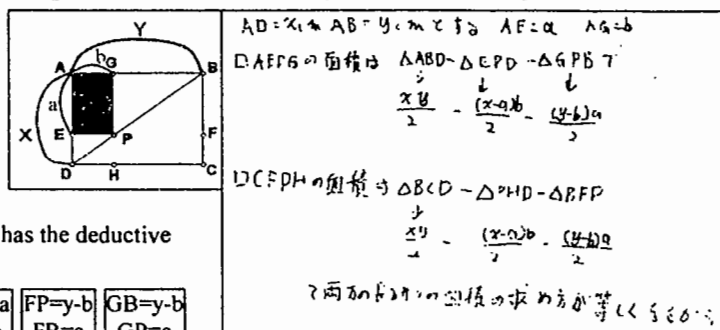 Y
A
b
G
B
a
X
E
P
F
D
H
C
has the deductive
a
FP=y-b
GB=y-b
FB=a
GP=a
AD=x cm AB=y cm とする AE=a AG=b
□AEPGの面積は △ABD-△EPD-△GPBで
xy/2 - (x-a)b/2 - (y-b)a/2
□CFPHの面積は △BCD-△PHD-△BFP
xy/2 - (x-a)b/2 - (y-b)a/2
で両方の の面積の求め方が等しく